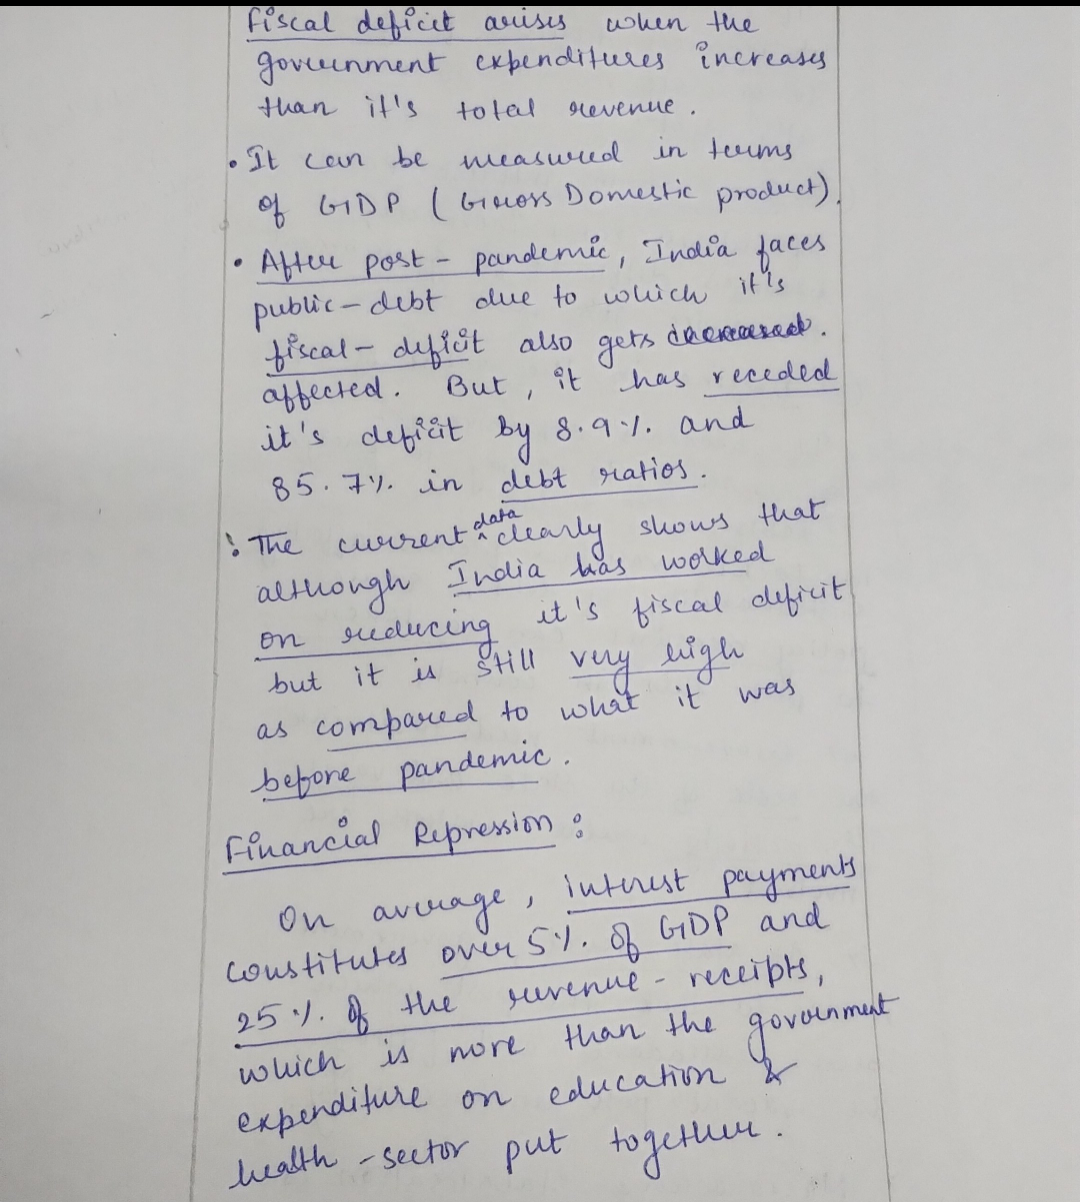 Fiscal deficit arises when the
government expenditures increases
than it's total revenue.
• It can be measured in terms
of GDP (Gross Domestic product).
• After post - pandemic, India faces
public - debt due to which it's
fiscal - deficit also gets
affected. But, it has receded
it's deficit by 8.9%. and
85.7%. in debt ratios.
: The current data clearly shows that
although India has worked
on reducing it's fiscal deficit
but it is still very high
as compared to what it was
before pandemic.
Financial Repression :
On average, interest payments
constitutes over 5%. of GDP and
25%. of the revenue - receipts,
which is more than the government
expenditure on education &
health - sector put together.